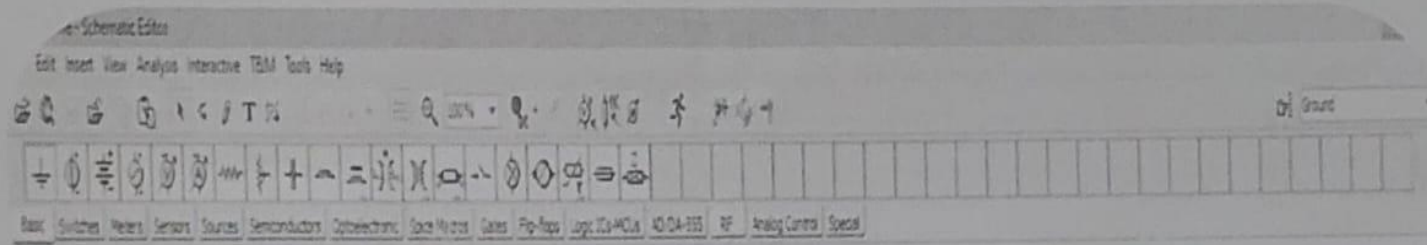 e - Schematic Editor
Edit Insert View Analysis Interactive T&M Tools Help
T 100% Ground
Basic Switches Meters Sensors Sources Semiconductors Optoelectronic Spice Macros Gates Flip-flops Logic ICs-MCUs AD/DA-555 RF Analog Control Special